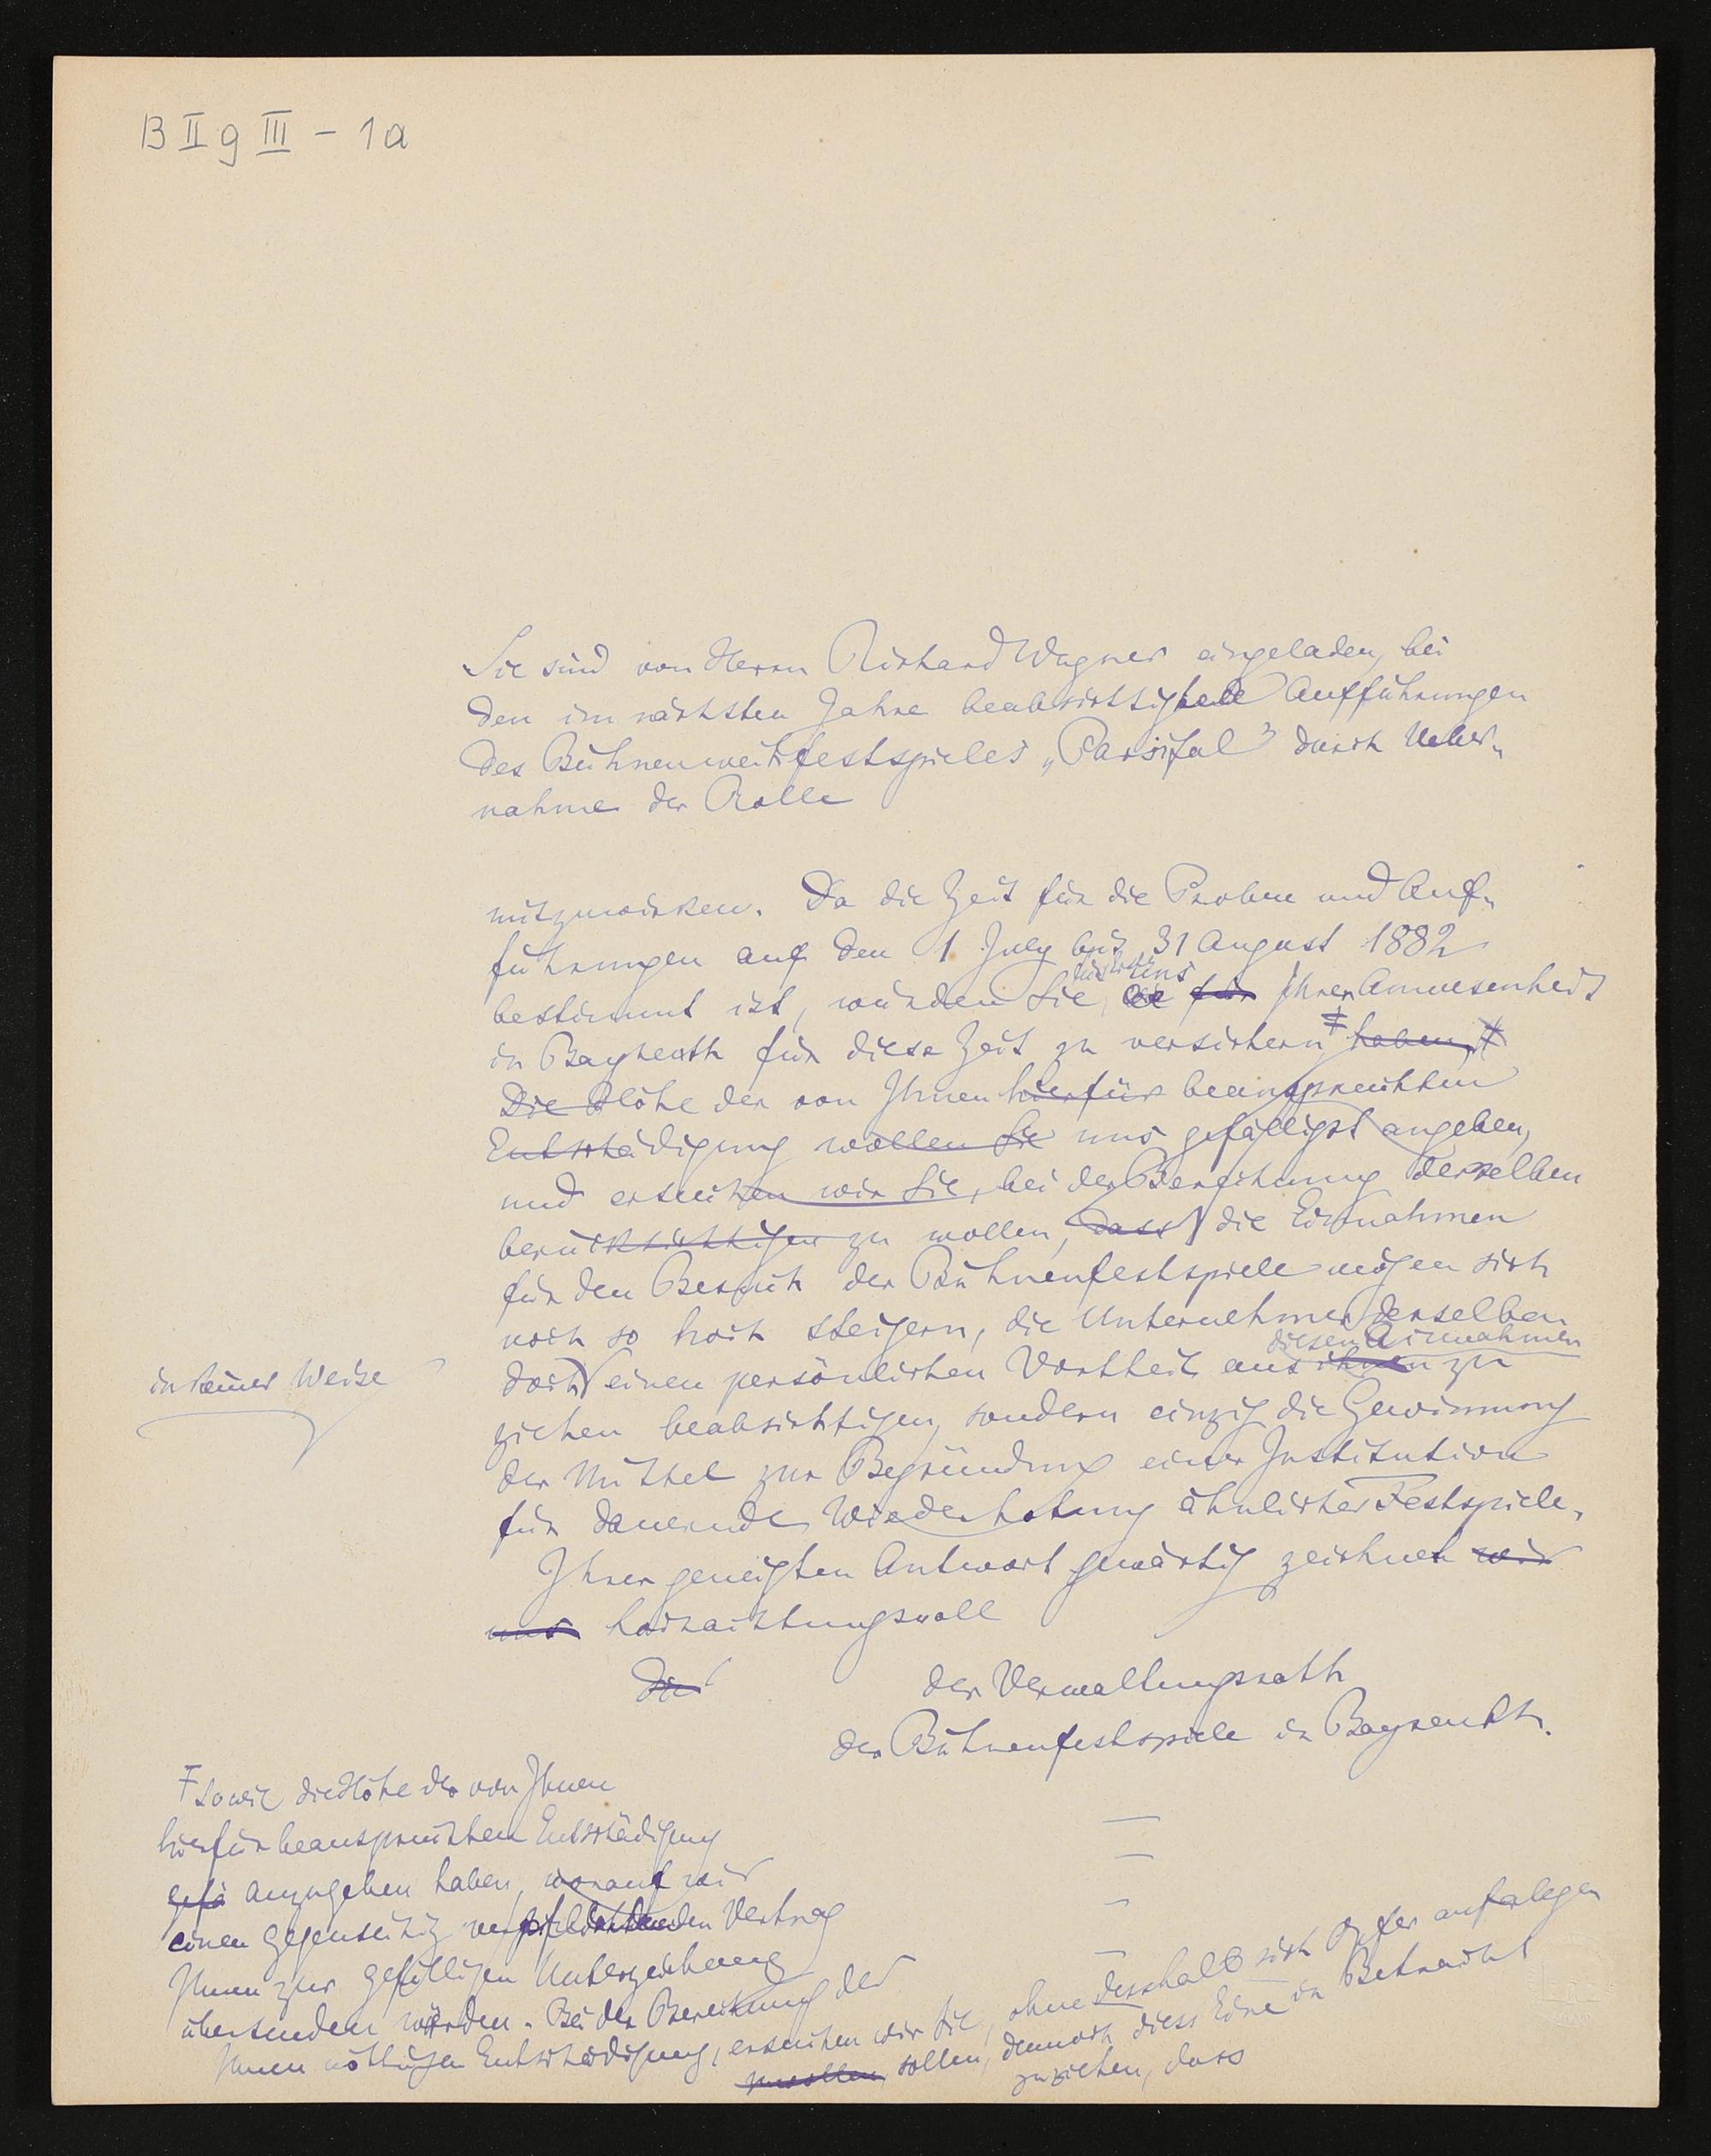 B II g III - 1a
Sie sind von Herrn Richard Wagner eingeladen, bei
den im nächsten Jahre beabsichtigten Aufführungen
des Bühnenweihfestspieles „Parsifal" durch Ueber„
nahme der Rolle
mitzuwirken. Da die Zeit für die Proben und Auf„
führungen auf den 1 July bis 31 August 1882
bestimmt ist, würden Sie uns für Ihrer Anwesenheit
in Bayreuth für diese Zeit zu versichern haben,
Die Höhe der von Ihnen hierfür beanspruchten
Entschädigung wollen Sie uns gefälligst angeben,
und ersuchen wir Sie, bei der Berechnung derselben
berücksichtigen zu wollen, dass die Einnahmen
für den Besuch der Bühnenfestspiele mögen sich
noch so hoch steigern, die Unternehmer derselben
diesen Einnahmen
in keiner Weise
doch einen persönlichen Vortheil aus ihnen zu
ziehen beabsichtigen, sondern einzig die Gewinnung
der Mittel zur Begründung einer Institution
für dauernde Wiederholung ähnlicher Festspiele.
Ihrer geneigten Antwort gewärtig zeichnet wir
uns hochachtungsvoll
Die
der Verwaltungsrath
der Bühnenfestspiele in Bayreuth.
sowie die Höhe der von Ihnen
hierfür beanspruchten Entschädigung
anzugeben haben, worauf wir
einen gegenseitig verpflichtenden Vertrag
Ihnen zur gefälligen Unterzeichnung
übersenden würden. Bei der Berechnung der
Ihnen nöthigen Entschädigung, ersuchen wir Sie, ohne desshalb sich Opfer auferlegen
zu wollen sollen, dennoch diess Eine in Betracht
zu ziehen, dass